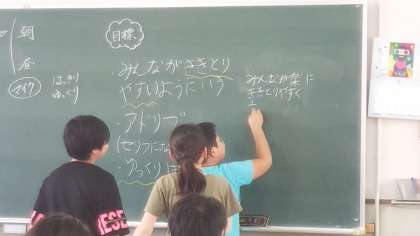 朝
昼
マイク
はっきり
ゆっくり
目標
・みんながききとり
やすいようにいう
・アドリブ
(セリフにな
・ゆっくり
みんなが楽に
ききとりやすく